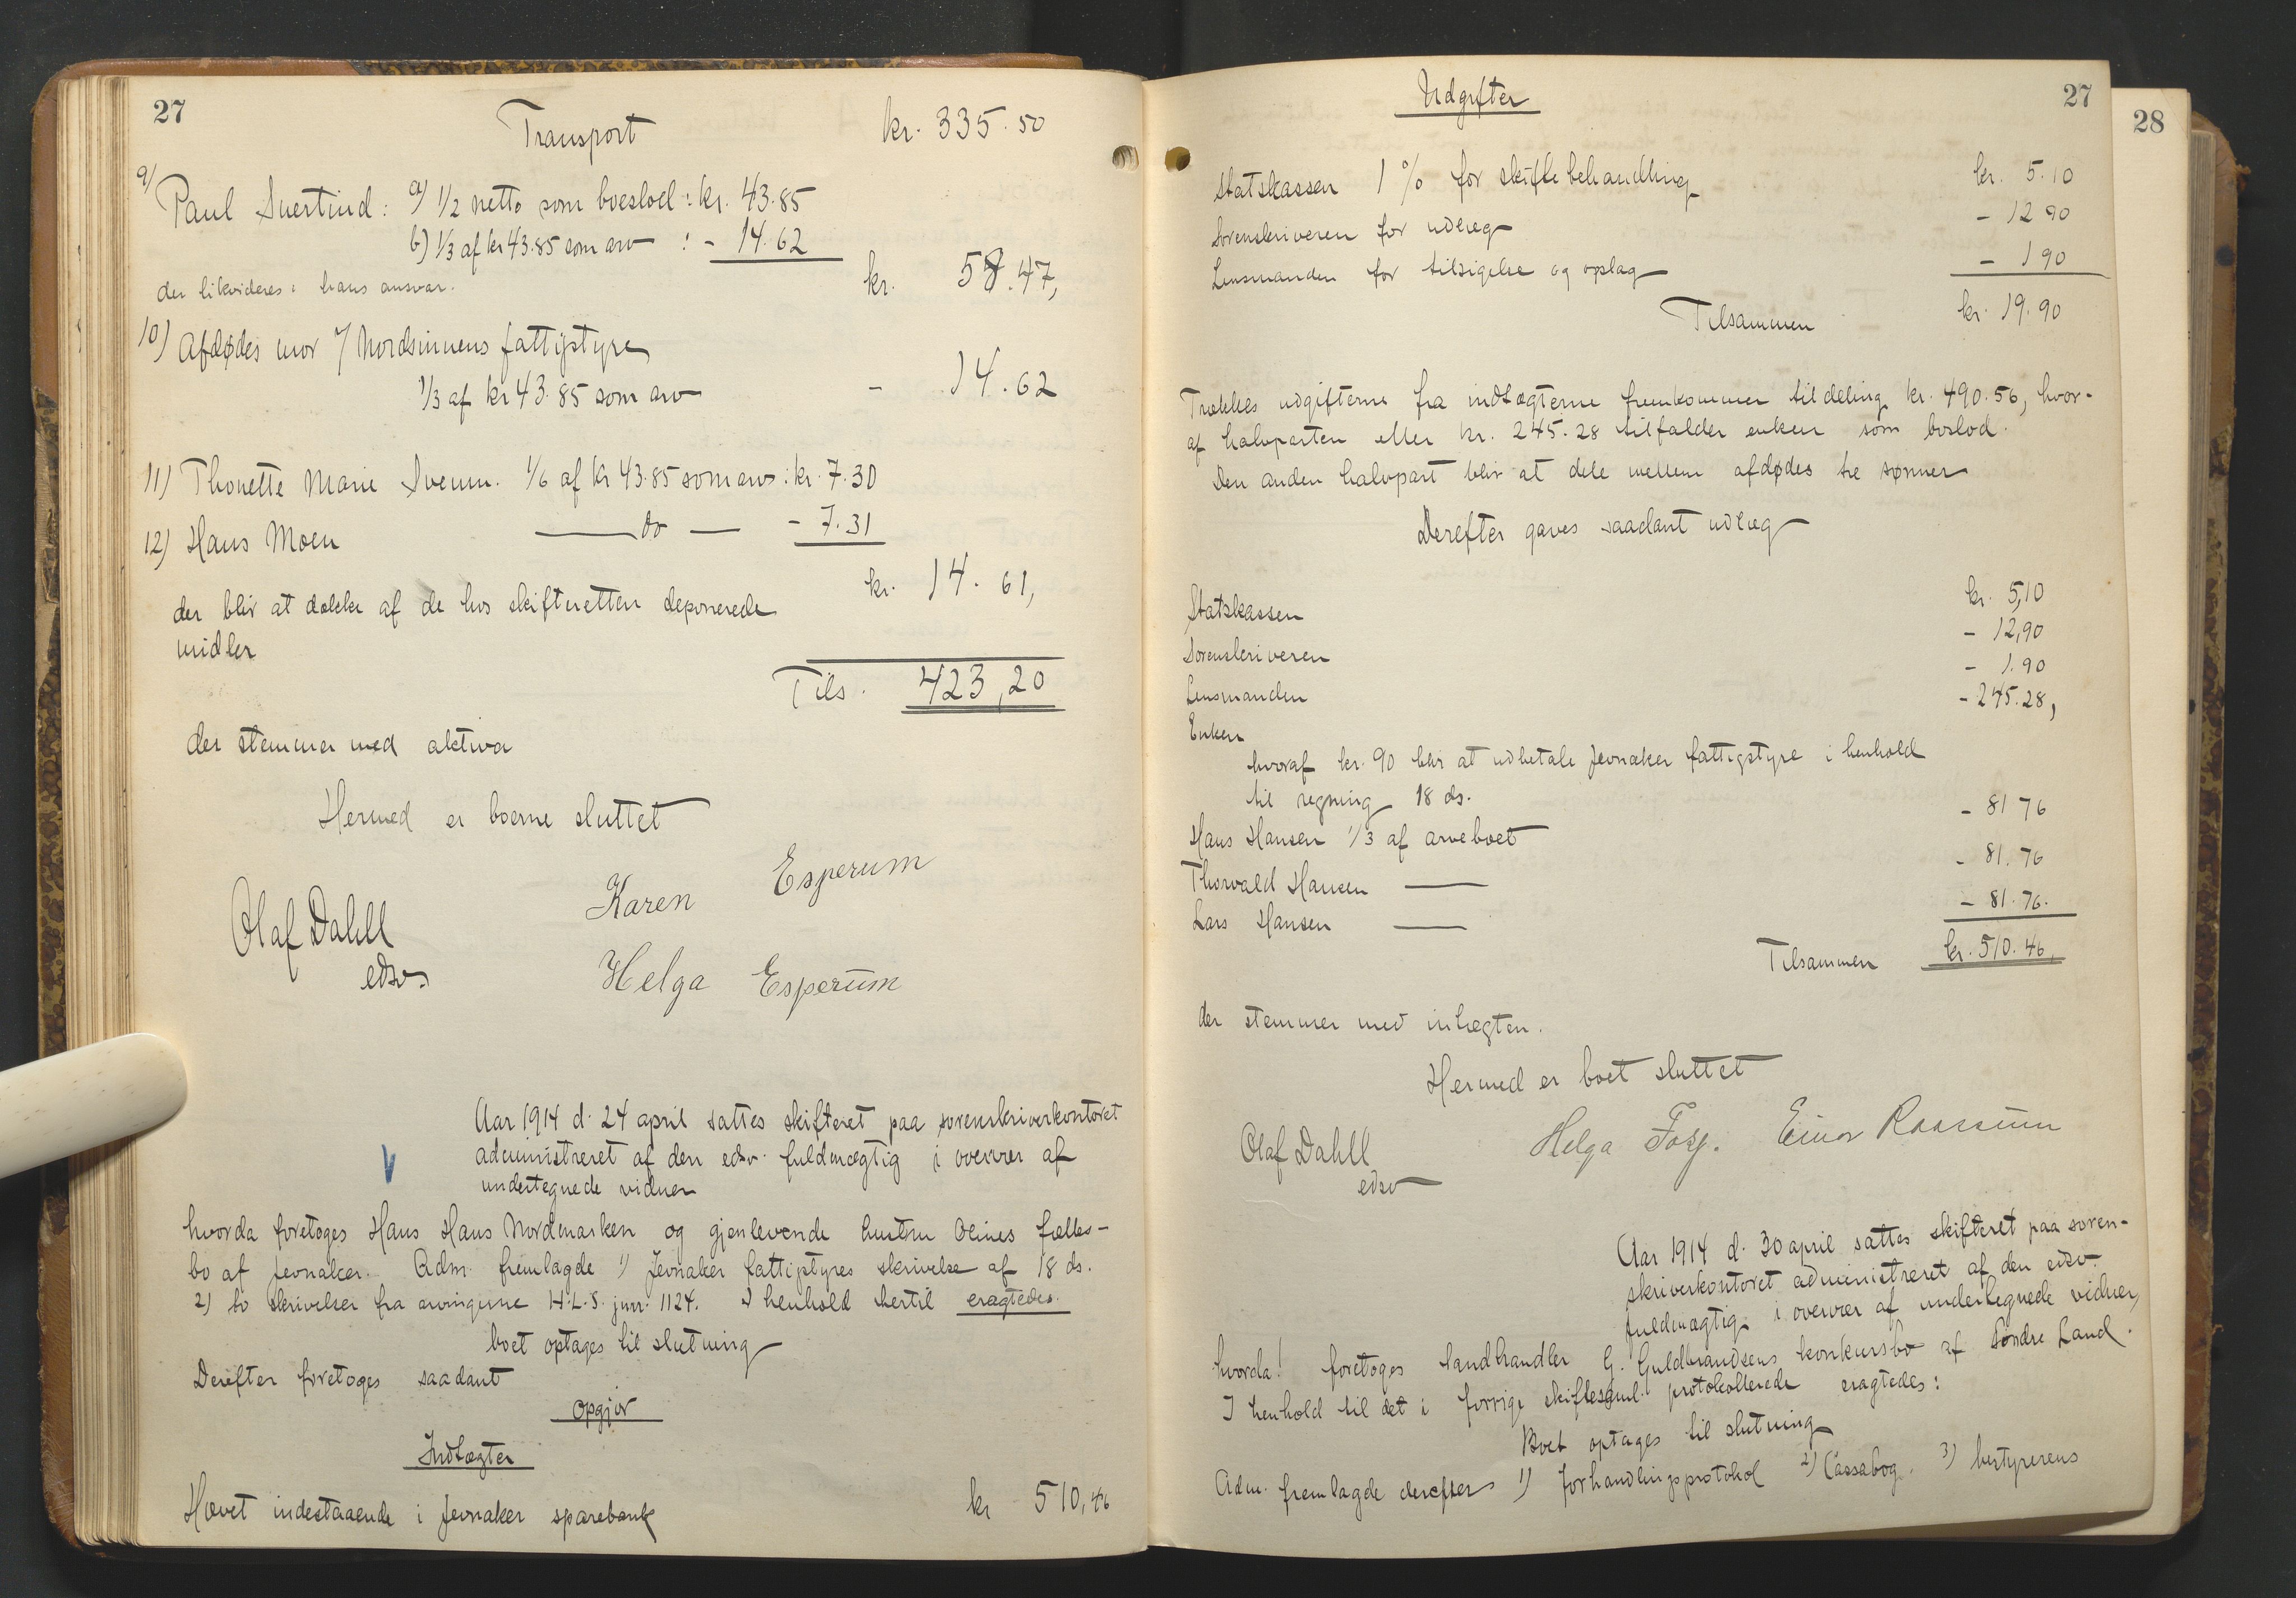 27
Transport kr. 335.50
9) Paul Snertind: a) 1/2 netto som boeslod: kr. 43.85
b) 1/3 af kr 43.85 som arv : - 14.62
kr. 58.47,
der likvideres i hans ansvar.
10) Afdødes mor v/ Nordsinnens fattigstyre
1/3 af kr 43.85 som arv - 14.62
11) Thonette Marie Svenn. 1/6 af kr 43.85 som arv: kr. 7.30
12) Hans Moen — do — - 7.31
kr. 14.61,
der blir at dække af de hos skifteretten deponerede
midler
Tils. 423,20
der stemmer med aktiva
Hermed er boerne sluttet
Karen Esperum
Olaf Dahll
edsv
Helga Esperum
Aar 1914 d. 24 april sattes skifteret paa sorenskriverkontoret
administreret af den edsv. fuldmægtig i overvær af
undertegnede vidner
hvorda foretoges Hans Hans Nordmarken og gjenlevende hustru Olines fælles-
bo af Jevnaker. Adm. fremlagde 1) Jevnaker fattigstyres skrivelse af 18 ds.
2) to skrivelser fra arvingerne H.L.S. jnr. 1124. I henhold hertil eragtedes.
boet optages til slutning
Derefter foretoges saadant
opgjør
Indtægter
Hævet indestaaende i Jevnaker sparebank kr 510,46
Udgifter
27
28
Statskassen 1 % for skiftebehandling kr. 5.10
Sorenskriveren for udlæg - 12 90
Lensmanden for tilsigelse og opslag - 1 90
Tilsammen kr. 19.90
Trækkes udgifterne fra indtægterne fremkommer til deling kr. 490.56, hvor-
af halvparten eller kr. 245.28 tilfalder enken som boslod.
Den anden halvpart blir at dele mellem afdødes tre sønner
Derefter gaves saadant udlæg
Statskassen kr. 5,10
Sorenskriveren - 12,90
Lensmanden - 1.90
Enken - 245.28,
hvoraf kr. 90 blir at udbetale Jevnaker fattigstyre i henhold
til regning 18 ds.
Hans Hansen 1/3 af arveboet - 81 76
Thorvald Hansen — - 81.76
Lars Hansen — - 81.76.
Tilsammen kr. 510.46,
der stemmer med indtægten.
Hermed er boet sluttet
Olaf Dahll
edsv
Helga Fosj. Einar Raassum
Aar 1914 d. 30 april sattes skifteret paa soren-
skriverkontoret administreret af den edsv.
fuldmægtig i overvær af undertegnede vidner,
hvorda! foretoges landhandler G. Guldbrandsens konkursbo af Søndre Land.
I henhold til det i forrige skiftesaml. protokollerede eragtedes:
Boet optages til slutning
Adm. fremlagde derefter 1) forhandlingsprotokol 2) Cassabog. 3) bestyrerens